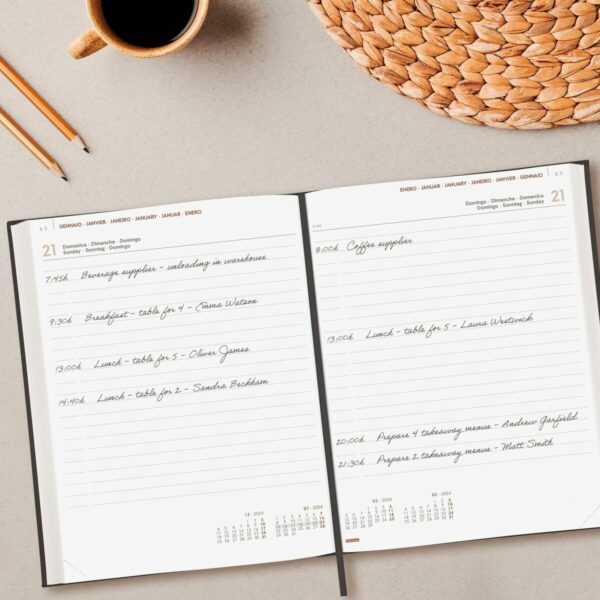 GENNAIO · JANVIER · JANEIRO · JANUARY · JANUAR · ENERO
21
Domenica · Dimanche · Domingo
Sunday · Sonntag · Domingo
7:45h Beverage supplier - unloading in warehouse
9:30h Breakfast - table for 4 - Emma Watson
13:00h Lunch - table for 5 - Oliver James
14:40h Lunch - table for 2 - Sandra Beckham
12 · 2023
01 · 2024
ENERO · JANUAR · JANUARY · JANEIRO · JANVIER · GENNAIO
21
Domingo · Dimanche · Domenica
Domingo · Sonntag · Sunday
8:00h Coffee supplier
13:00h Lunch - table for 5 - Laura Westwick
20:00h Prepare 4 takeaway menus - Andrew Garfield
21:30h Prepare 2 takeaway menus - Matt Smith
02 · 2024
03 · 2024